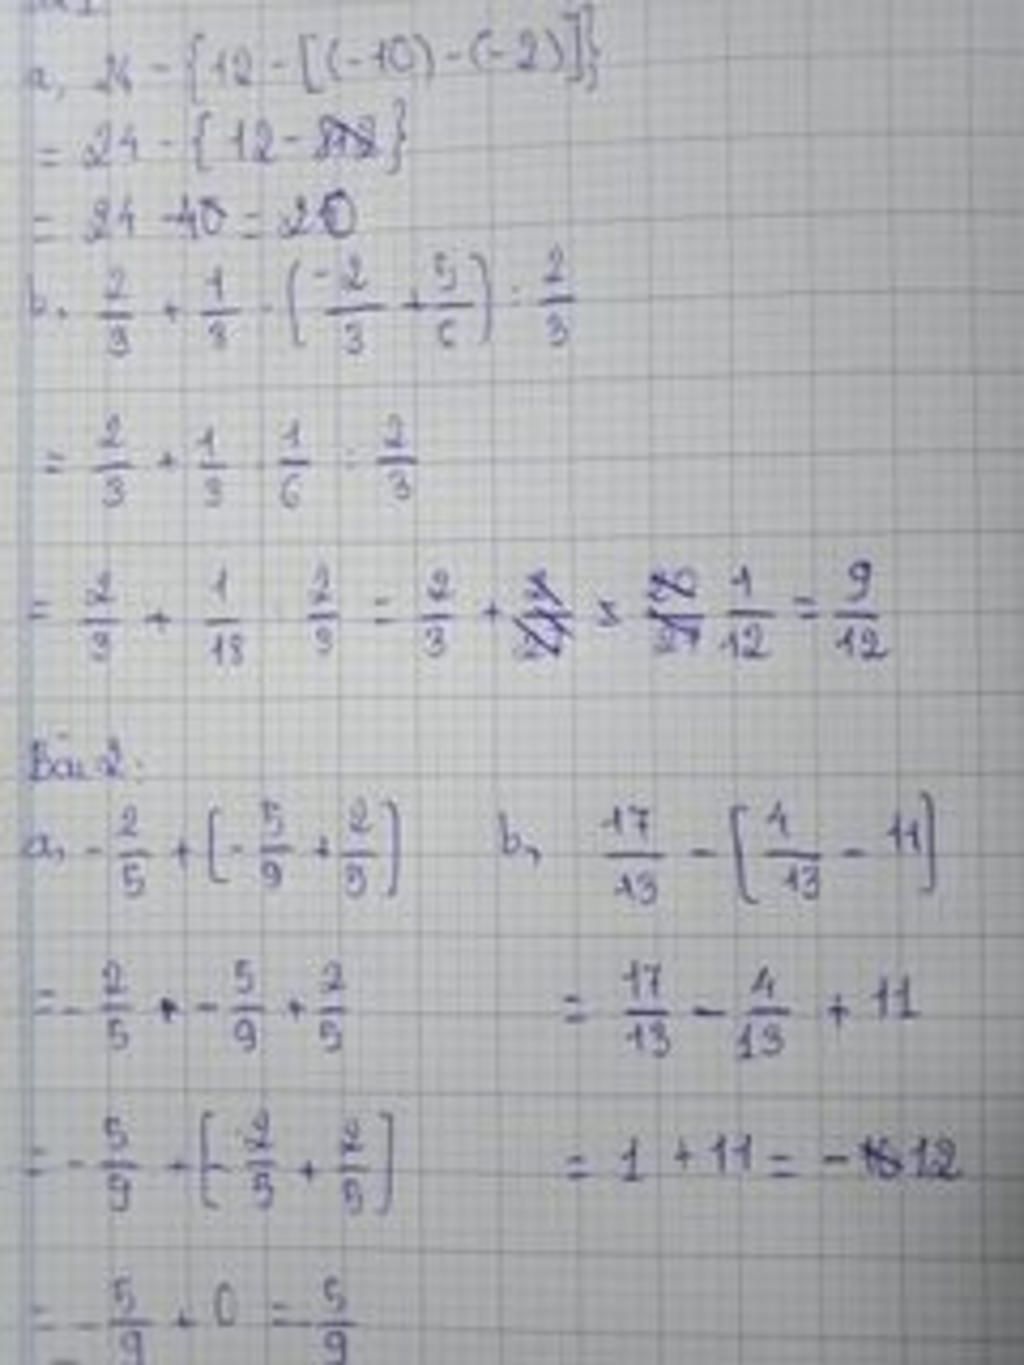 a, 24 - {12 - [(-10) - (-2)]}
= 24 - {12 - }
= 24 - 10 = 20
b, 2/3 + 1/3 · (-2/3 + 5/6) : 2/3
= 2/3 + 1/3 · 1/6 : 2/3
= 2/3 + 1/18 : 2/3 = 2/3 + 1/12 = 9/12
Bài 2:
a, - 2/5 + (- 5/9 + 2/5)
= - 2/5 + - 5/9 + 2/5
= - 5/9 + (- 2/5 + 2/5)
= - 5/9 + 0 = - 5/9
b, 17/13 - [4/13 - 11]
= 17/13 - 4/13 + 11
= 1 + 11 = - 12